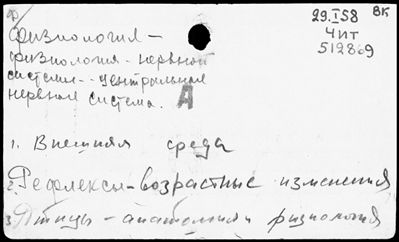 Ф
Физиология -
физиология - нервной
системы - центральная
нервная система.
А
29.I 58
ВК
Чит
512869
1. Внешняя среда
2. Рефлексы - возрастные изменения
3. Птицы - анатомия и физиология